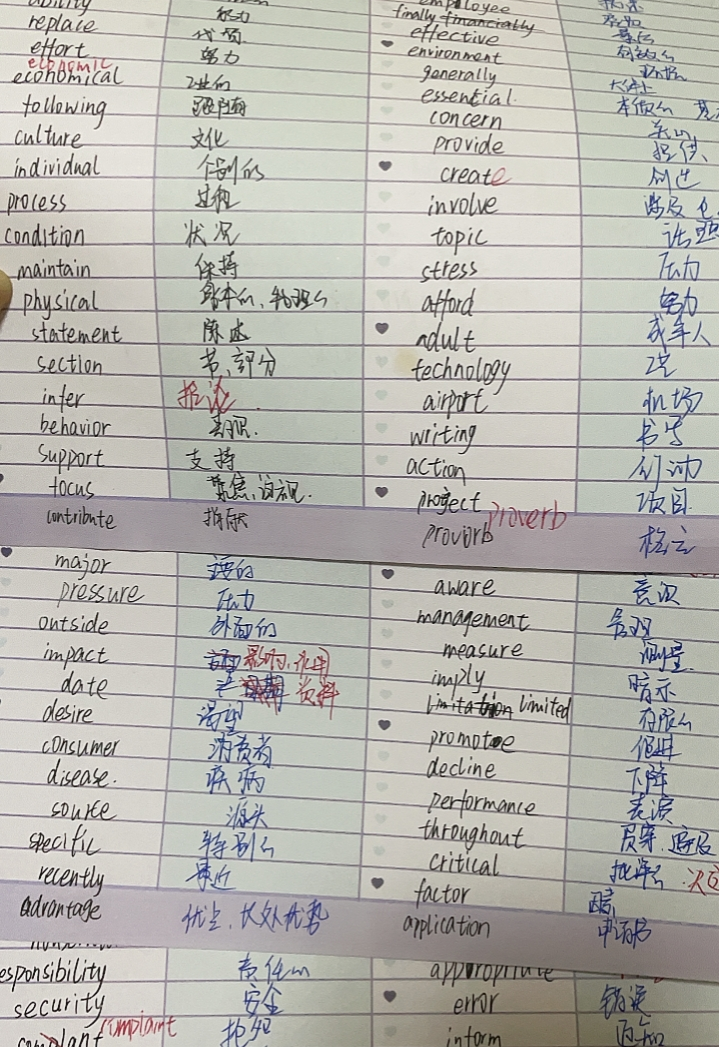 ability 能力
replace 代替
effort 努力
economic
economical
following
culture 文化
individual 个别的
process 过程
condition 状况
maintain 保持
physical 身体的、物理的
statement 陈述
section 节、部分
infer
behavior 表现.
support 支持
focus 聚焦、
contribute
major 主要的
pressure 压力
outside 外面的
impact 影响、作用
date 资料
desire 渴望
consumer 消费者
disease. 疾病
source 源头
specific 特别的
recently 最近
advantage 优点、长处优势
responsibility 责任的
security 安全
complaint
employee
finally financially
effective
environment 环境
generally 大体上
essential.
concern 关心
provide 提供
create 创造
involve 涉及
topic 话题
stress 压力
afford 努力
adult 成年人
technology
airport 机场
writing 书写
action 行动
project 项目
proverb
provorb 格言
aware 意识
management 管理
measure 测量
imply 暗示
limitation limited 有限的
promote 促进
decline 下降
performance 表演
throughout 贯穿、遍及
critical 批评的
factor 因素
application 申请书
appropriate
error 错误
inform 通知